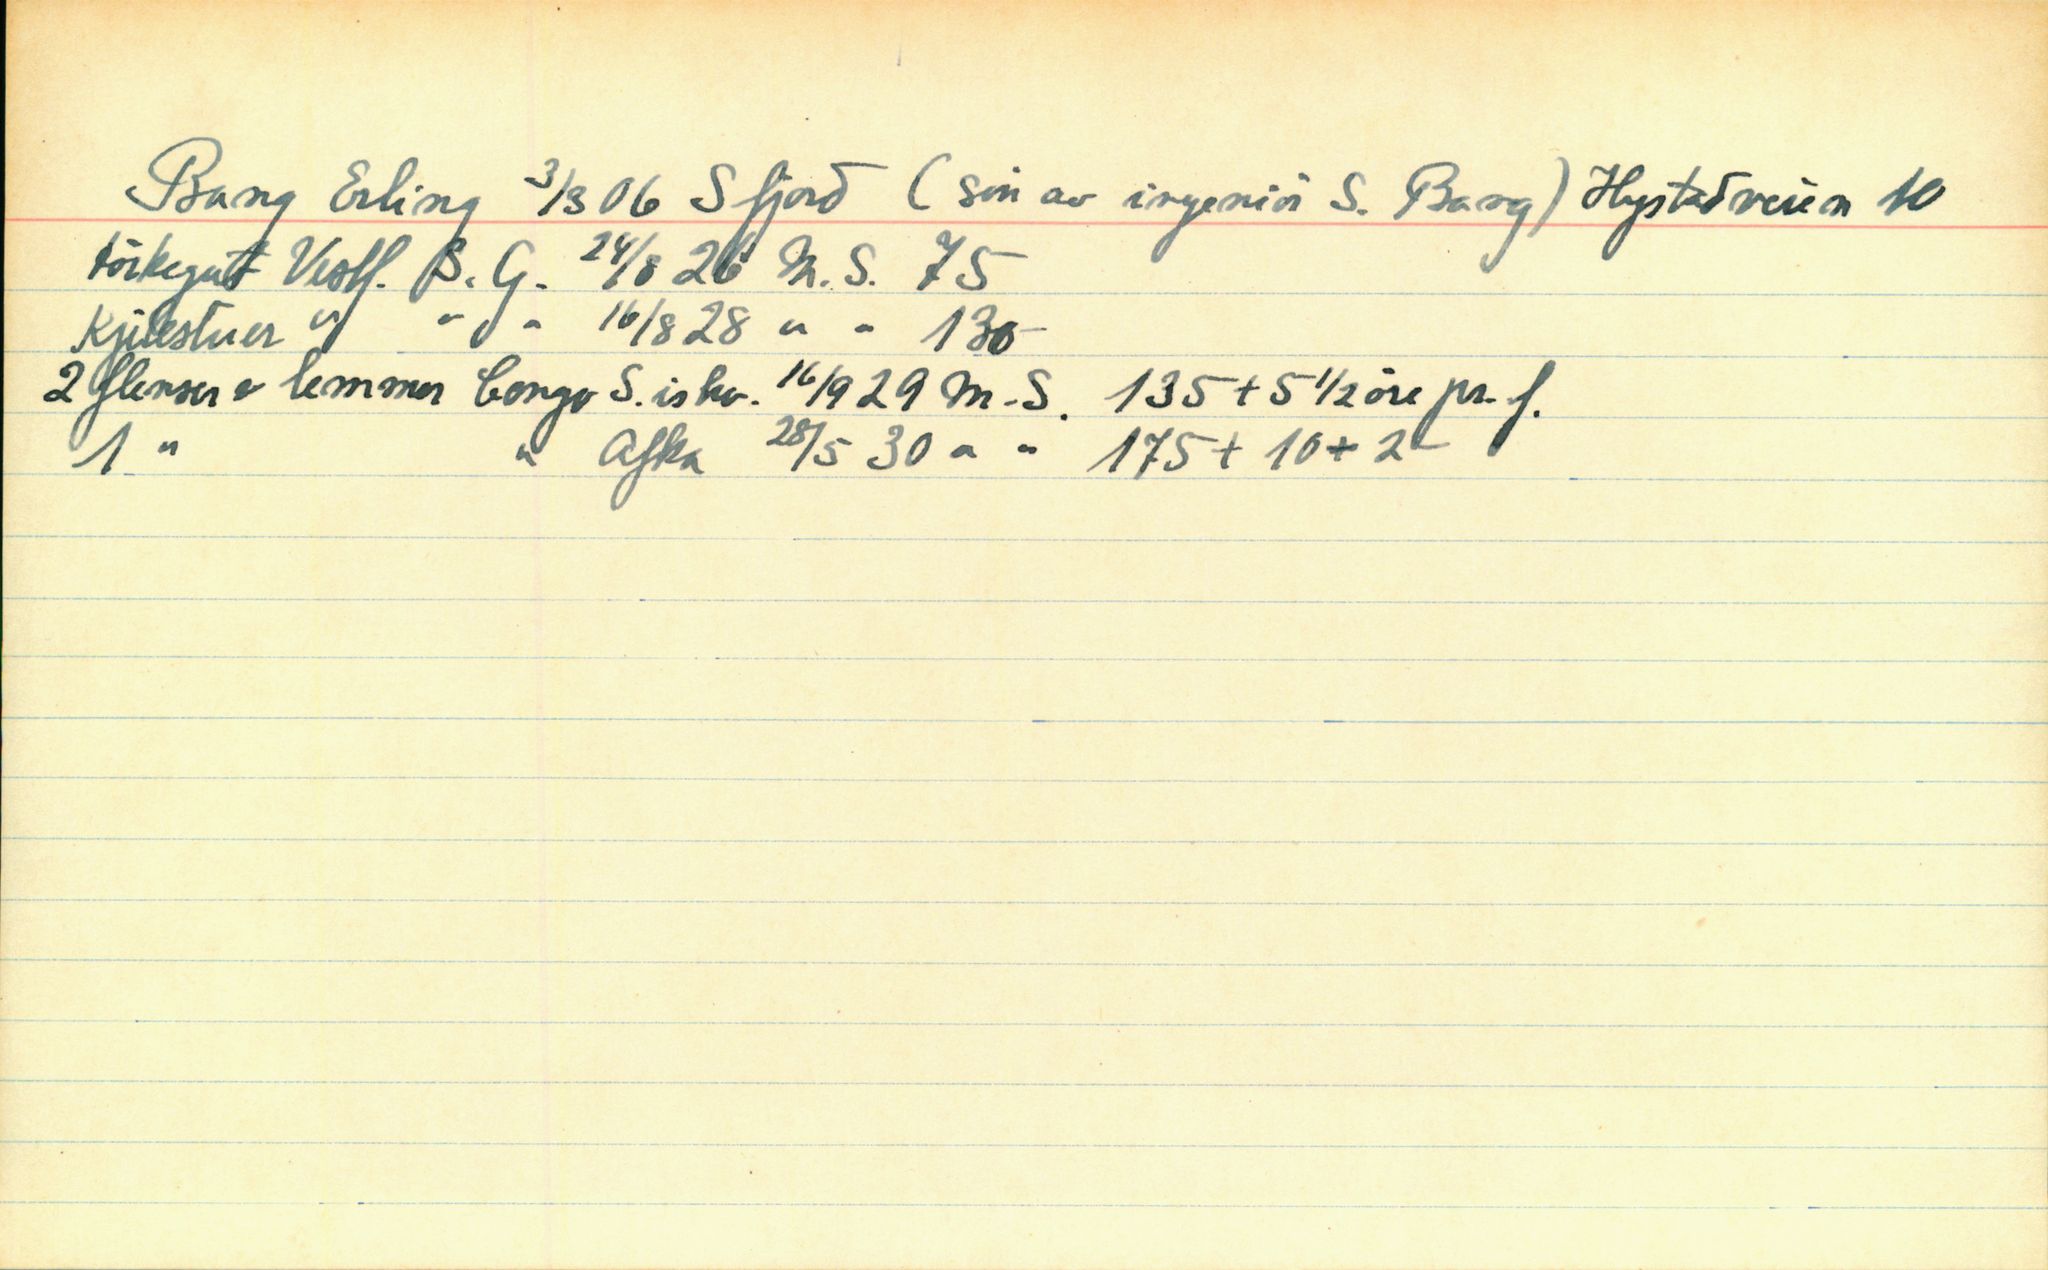 Bang Erling 3/3 06 Sfjord (sön av ingeniör S. Bang) Hystadveien 10
törkegutt Vestf. S. G. 24/8 26 M. S. 75
Kjülestuer " " " 16/8 28 " " 130-
2 flenser o lemmer Congo S. iska. 16/9 29 M. S. 135 + 5 1/2 öre pr. f.
1 " " Afka 28/5 30 " " 175 + 10 + 2-